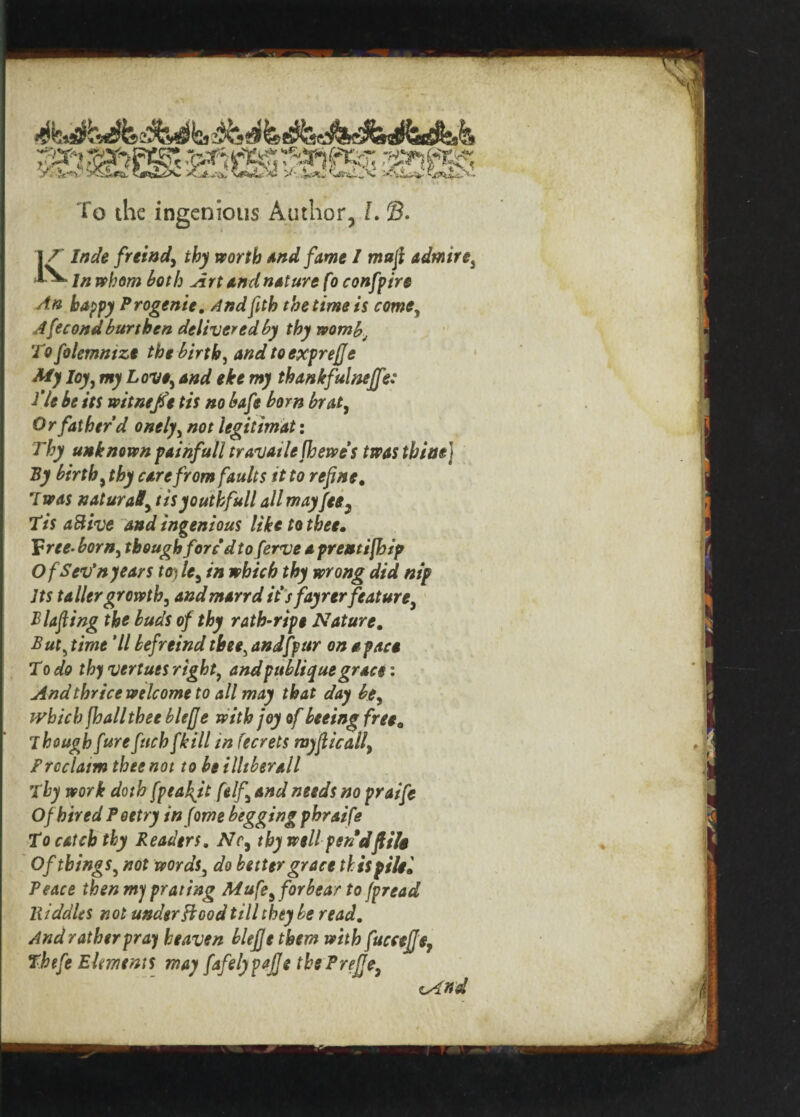 To the ingenious Author, I. B.
KInde freind, thy worth and fame I muſt admire,
In whom both Art and nature ſo conſpire
An happy Progenie. And ſith the time is come,
A ſecond burthen delivered by thy womb,
To ſolemnize the birth, and to expreſſe
My Ioy, my Love, and eke my thankfulneſſe:
I'le be its witneſſe tis no baſe born brat,
Or father'd onely, not legitimat:
Thy unknown painfull travaile ſhewe's twas thine
By birth, thy care from faults it to refine.
Twas naturall, tis youthfull all may ſee,
Tis active and ingenious like to thee.
Free-born, though forc'd to ſerve a prentiſhip
Of Sev'n years to le, in which thy wrong did nip
Its taller growth, and marrd it's fayrer feature,
Blaſting the buds of thy rath-ripe Nature.
But, time 'll befreind thee, and ſpur on a pace
To do thy vertues right, and publique grace:
And thrice welcome to all may that day be,
Which ſhall thee bleſſe with joy of beeing free.
Though ſure ſuch ſkill in ſecrets myſticall,
Proclaim thee not to be illiberall
Thy work doth ſpeak it ſelf, and needs no praiſe
Of hired Poetry in ſome begging phraiſe
To catch thy Readers. No, thy well pen'd ſtile
Of things, not words, do better grace this pile.
Peace then my prating Muſe, forbear to ſpread
Riddles not underſtood till they be read.
And rather pray heaven bleſſe them with ſucceſſe,
Theſe Elements may ſafely paſſe the Preſſe,
And